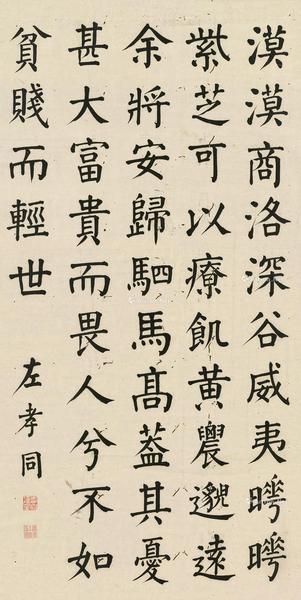 漠漠商洛深谷威夷曄曄
紫芝可以療飢黃農邈遠
余將安歸駟馬髙蓋其憂
甚大富貴而畏人兮不如
貧賤而輕世
左孝同